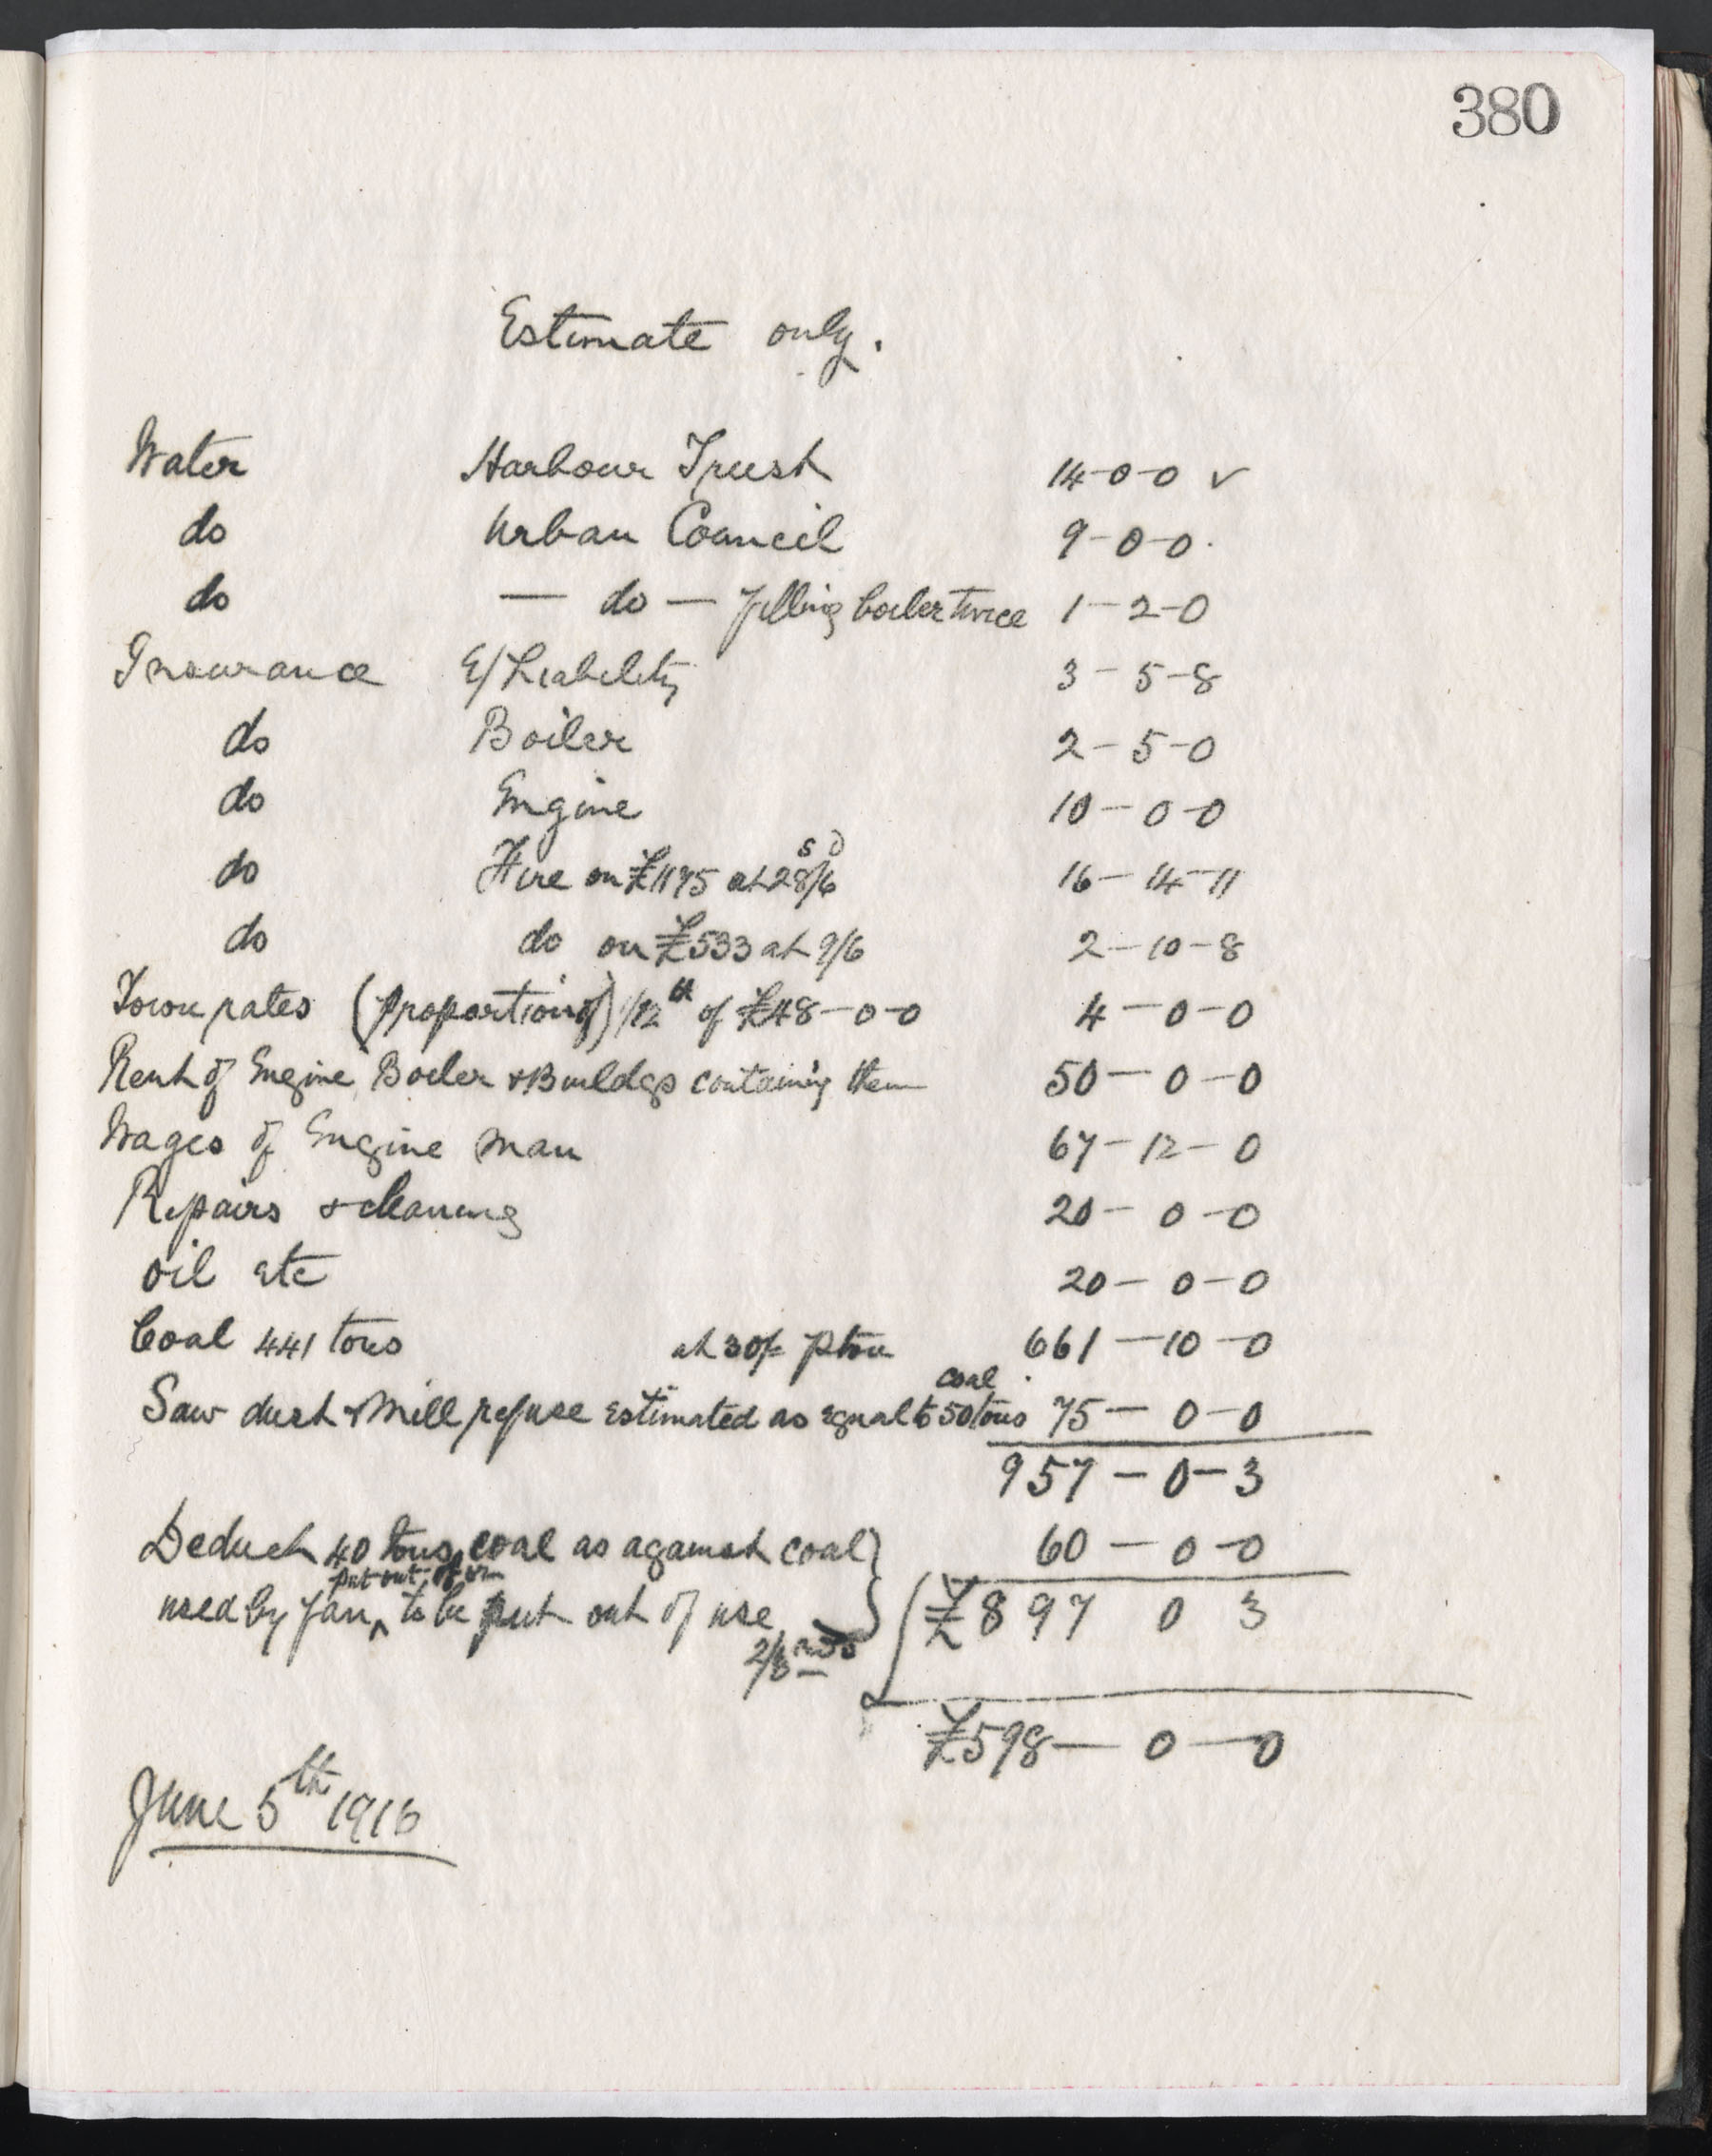 380
Estimate only.
Water Harbour Trust 14-0-0 ✓
do Urban Council 9-0-0.
do — do — filling boiler twice 1-2-0
Insurance E/Liability 3-5-8
do Boiler 2-5-0
do Engine 10-0-0
do Fire on £1175 at 28/6 s D 16-14-11
do do on £533 at 9/6 2-10-8
Town rates (proportion of) 1/12th of £48-0-0 4-0-0
Rent of Engine, Boiler & Buildgs containing them 50-0-0
Wages of Engine man 67-12-0
Repairs & cleaning 20-0-0
Oil etc 20-0-0
Coal 441 tons at 30/- p ton 661-10-0
Saw dust & Mill refuse estimated as equal to 50 tons coal 75-0-0
957-0-3
Deduct 40 tons coal as against coal 60-0-0
put out of use
used by fan to be put out of use £897 0 3
2/3rds
£598-0-0
June 5th 1916